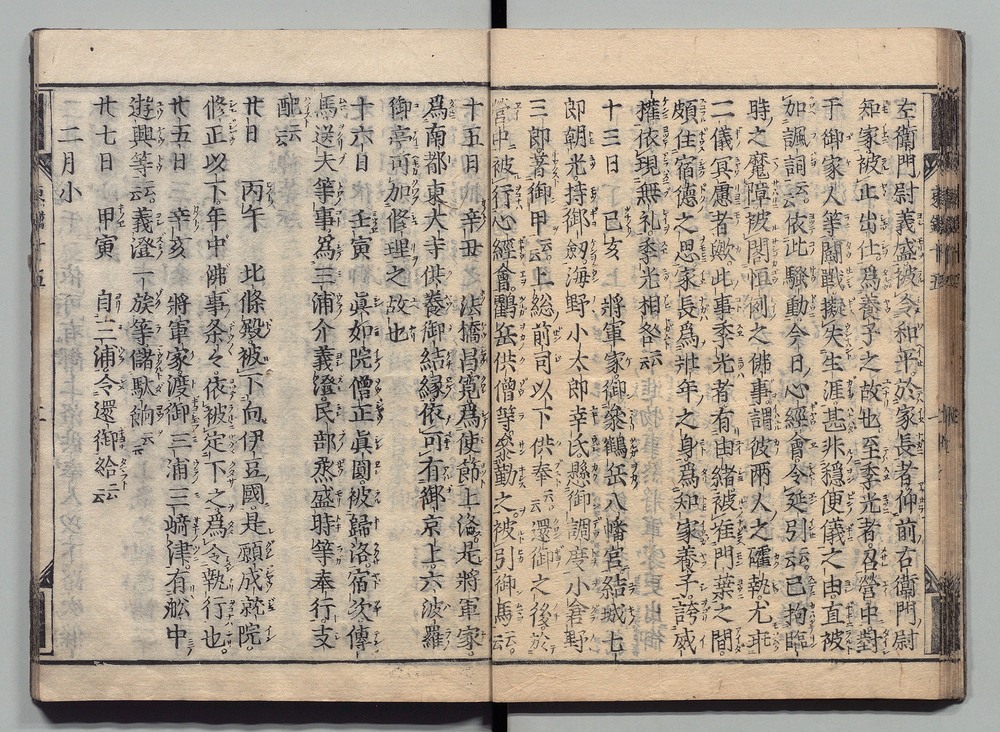 左衛門尉義盛被令和平於家長者仰前右衛門尉
知家被止出仕爲養子之故也至季光者召營中對
于御家人等鬪戰擬失生涯甚非穩便儀之由直被
如諷詞云云依此騷動今日心經會令延引云云已拘臨
時之魔障被閣恒例之佛事謂彼兩人之確執尤乖
二儀冥慮者歟此事季光者有由緒被准門葉之間
頗住宿德之思家長爲壯年之身爲知家養子誇威
權依現無礼季光相咎云云
十三日 己亥 將軍家御參鶴岳八幡宮結城七
郎朝光持御劔海野小太郎幸氏懸御調度小倉野
三郎著御甲云云上総前司以下供奉云云還御之後於
營中被行心經會鶴岳供僧等參勤之被引御馬云云
十五日 辛丑 法橋昌寛爲使節上洛是將軍家
爲南都東大寺供養御結縁依可有御京上六波羅
御亭可加修理之故也
十六日 壬寅 眞如院僧正眞圓被歸洛宿次傳
馬送夫等事爲三浦介義澄民部丞盛時等奉行支
配云云
廿日 丙午 北條殿被下向伊豆國是願成就院
修正以下年中佛事条々依被定下之爲令執行也
廿五日 辛亥 將軍家渡御三浦三﨑津有舩中
遊興等云云義澄一族等儲駄餉云云
廿七日 甲寅 自三浦令還御給云云
二月小
東鑑十五